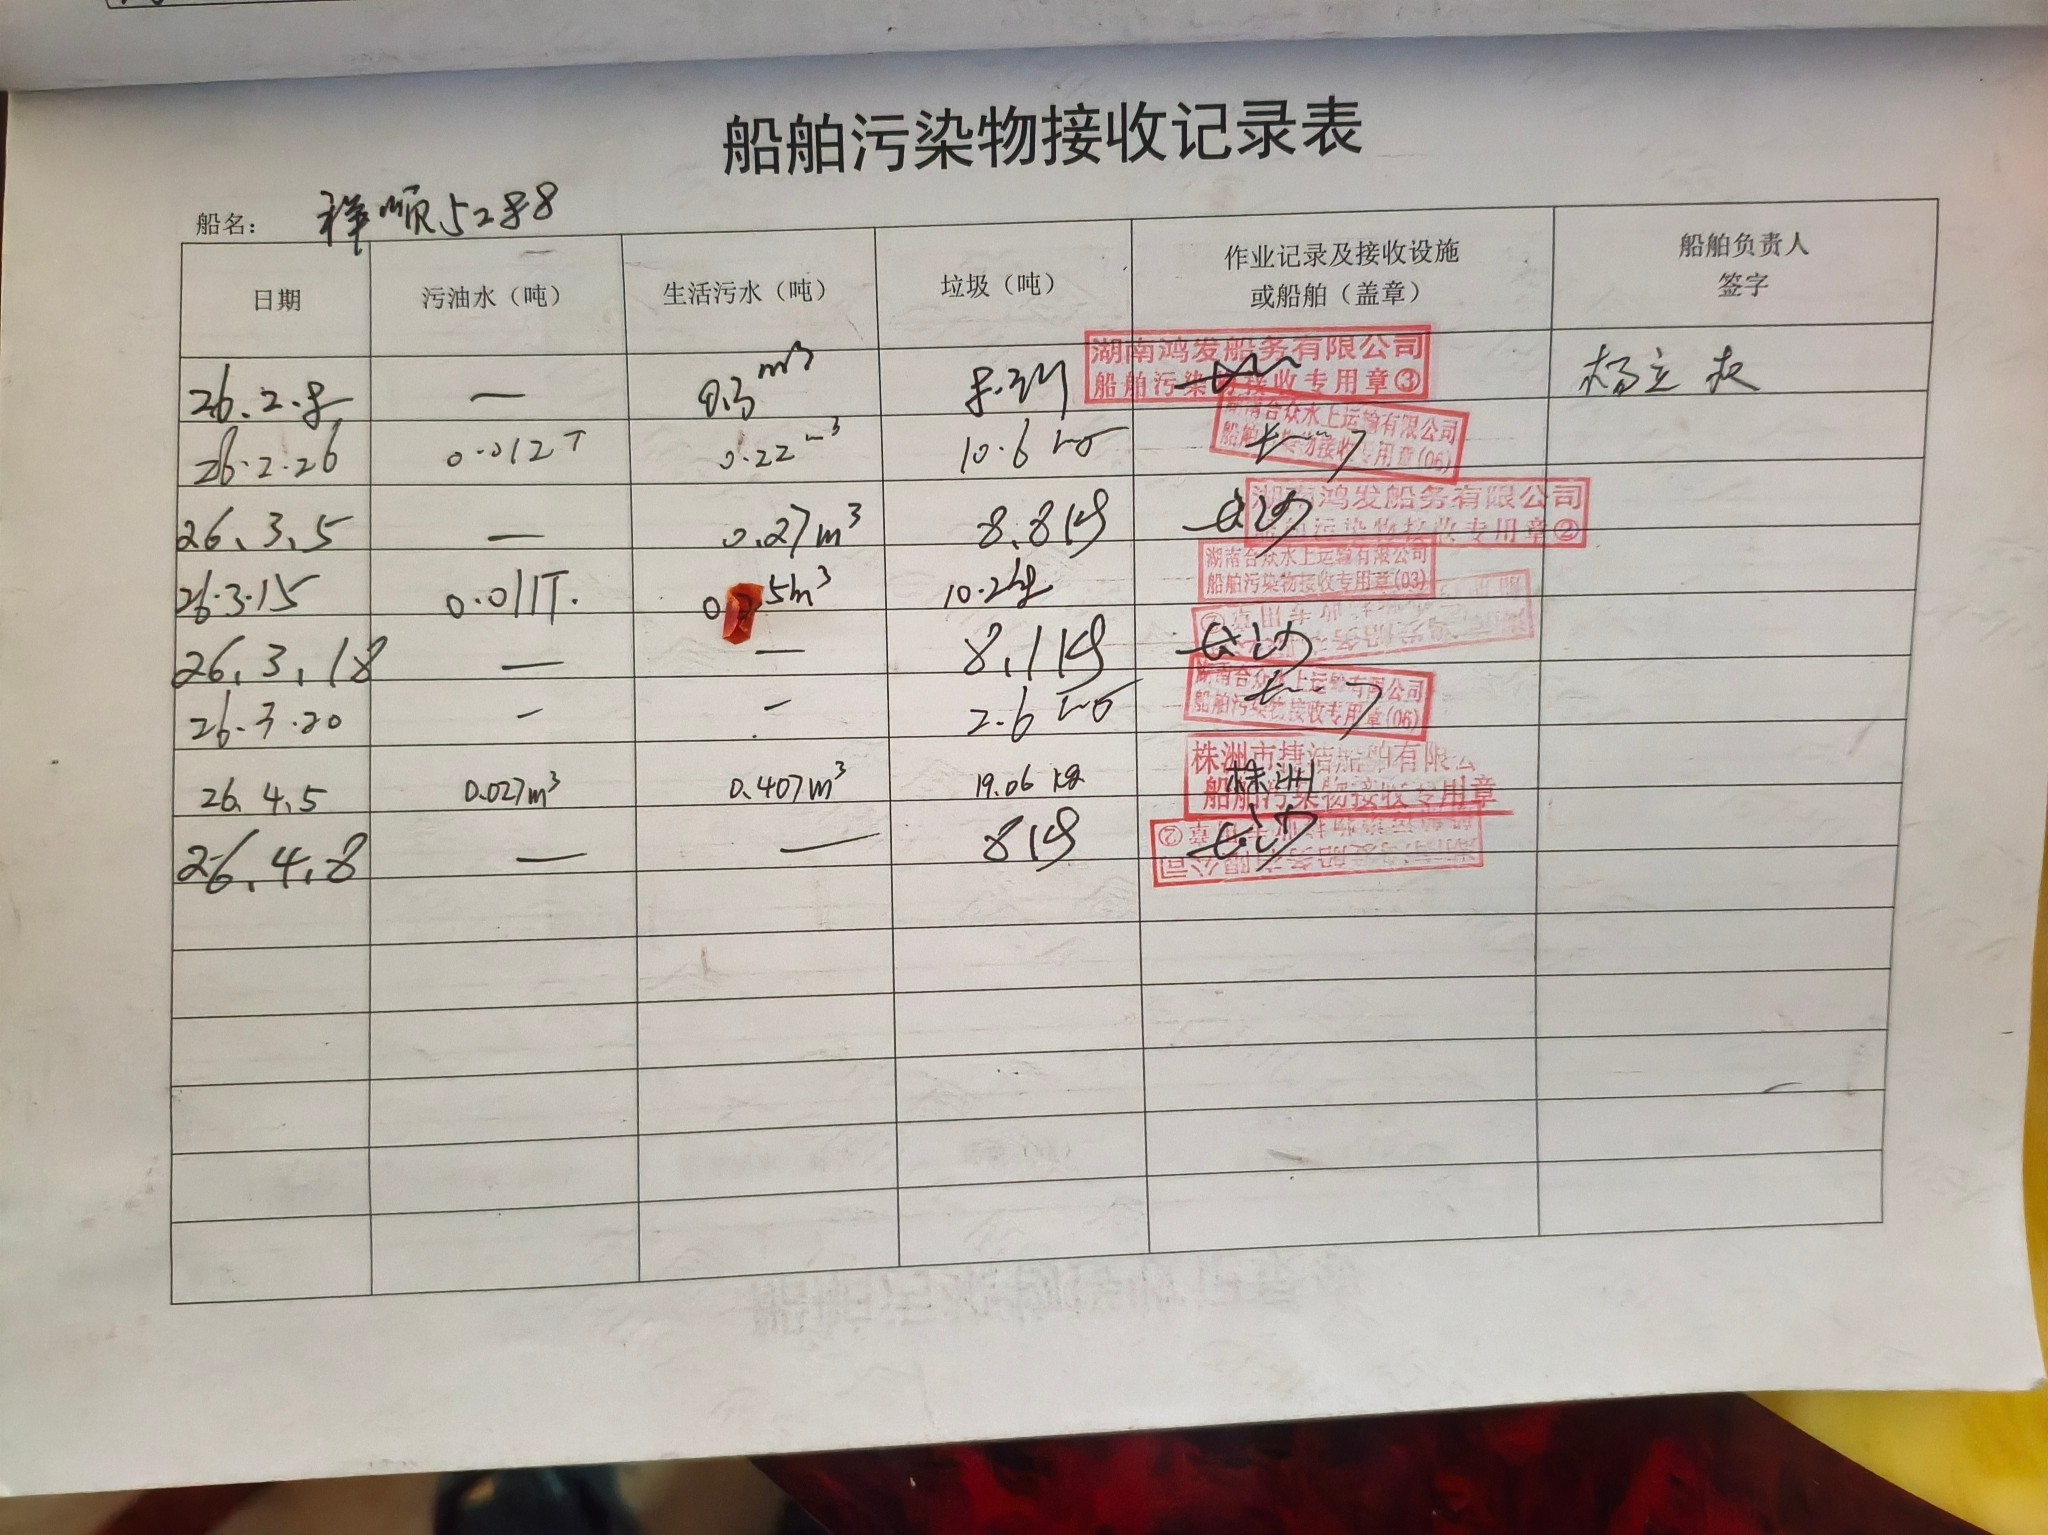 船舶污染物接收记录表
船名： 祥顺5288
日期 污油水（吨） 生活污水（吨） 垃圾（吨） 作业记录及接收设施或船舶（盖章） 船舶负责人签字
26.2.8 — 0.3m³ 8.3kg 湖南鸿发船务有限公司 船舶污染物接收专用章③ 杨立
26.2.26 0.012T 0.22m³ 10.6kg 湖南合众水上运输有限公司 船舶污染物接收专用章(06)
26.3.5 — 0.27m³ 8.8kg 长沙 湖南鸿发船务有限公司 船舶污染物接收专用章②
26.3.15 0.011T. 5m³ 10.2kg 湖南合众水上运输有限公司 船舶污染物接收专用章(03)
26.3.18 — — 8.1kg 长沙
26.3.20 — — 2.6kg 湖南合众水上运输有限公司 船舶污染物接收专用章(06)
26.4.5 0.027m³ 0.407m³ 19.06kg 株洲 株洲市捷洁船舶有限公 船舶污染物接收专用章
26.4.8 — — 8kg 长沙 湖南鸿发船务有限公司 船舶污染物接收专用章②